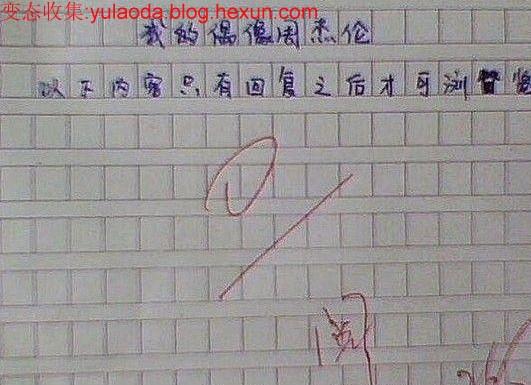 变态收集:yulaoda.blog.hexun.com
我的偶像周杰伦
以下内容只有回复之后才可浏览
阅